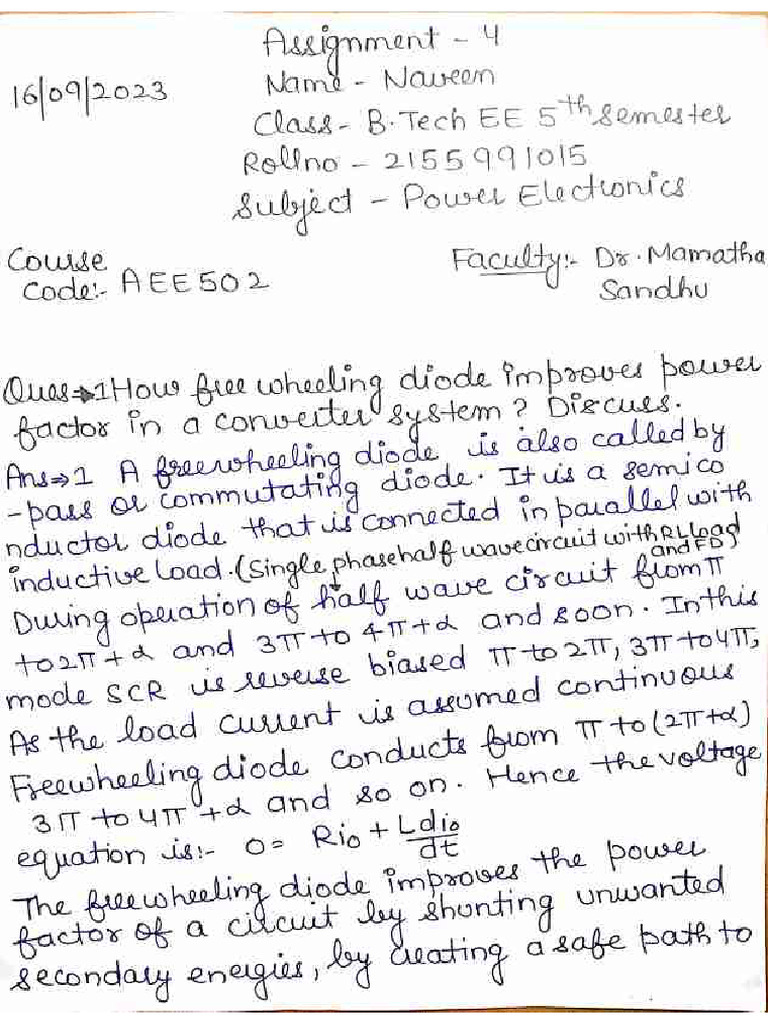 Assignment - 4
16/09/2023
Name - Naveen
Class - B.Tech EE 5th semester
Rollno - 2155991015
Subject - Power Electronics
Course
Code:- AEE502
Faculty:- Dr. Mamatha
Sandhu
Ques⇒1 How free wheeling diode improves power
factor in a converter system? Discuss.
Ans⇒1 A freewheeling diode is also called by
-pass or commutating diode. It is a semico
nductor diode that is connected in parallel with
inductive load. (Single phase half wave circuit with RL load
and FD)
During operation of half wave circuit from π
to 2π+α and 3π to 4π+α and soon. In this
mode SCR is reverse biased π to 2π, 3π to 4π,
As the load current is assumed continuous
Freewheeling diode conducts from π to (2π+α)
3π to 4π+α and so on. Hence the voltage
equation is:- 0 = Rio + Ldio/dt
The freewheeling diode improves the power
factor of a circuit by shunting unwanted
secondary energies, by creating a safe path to